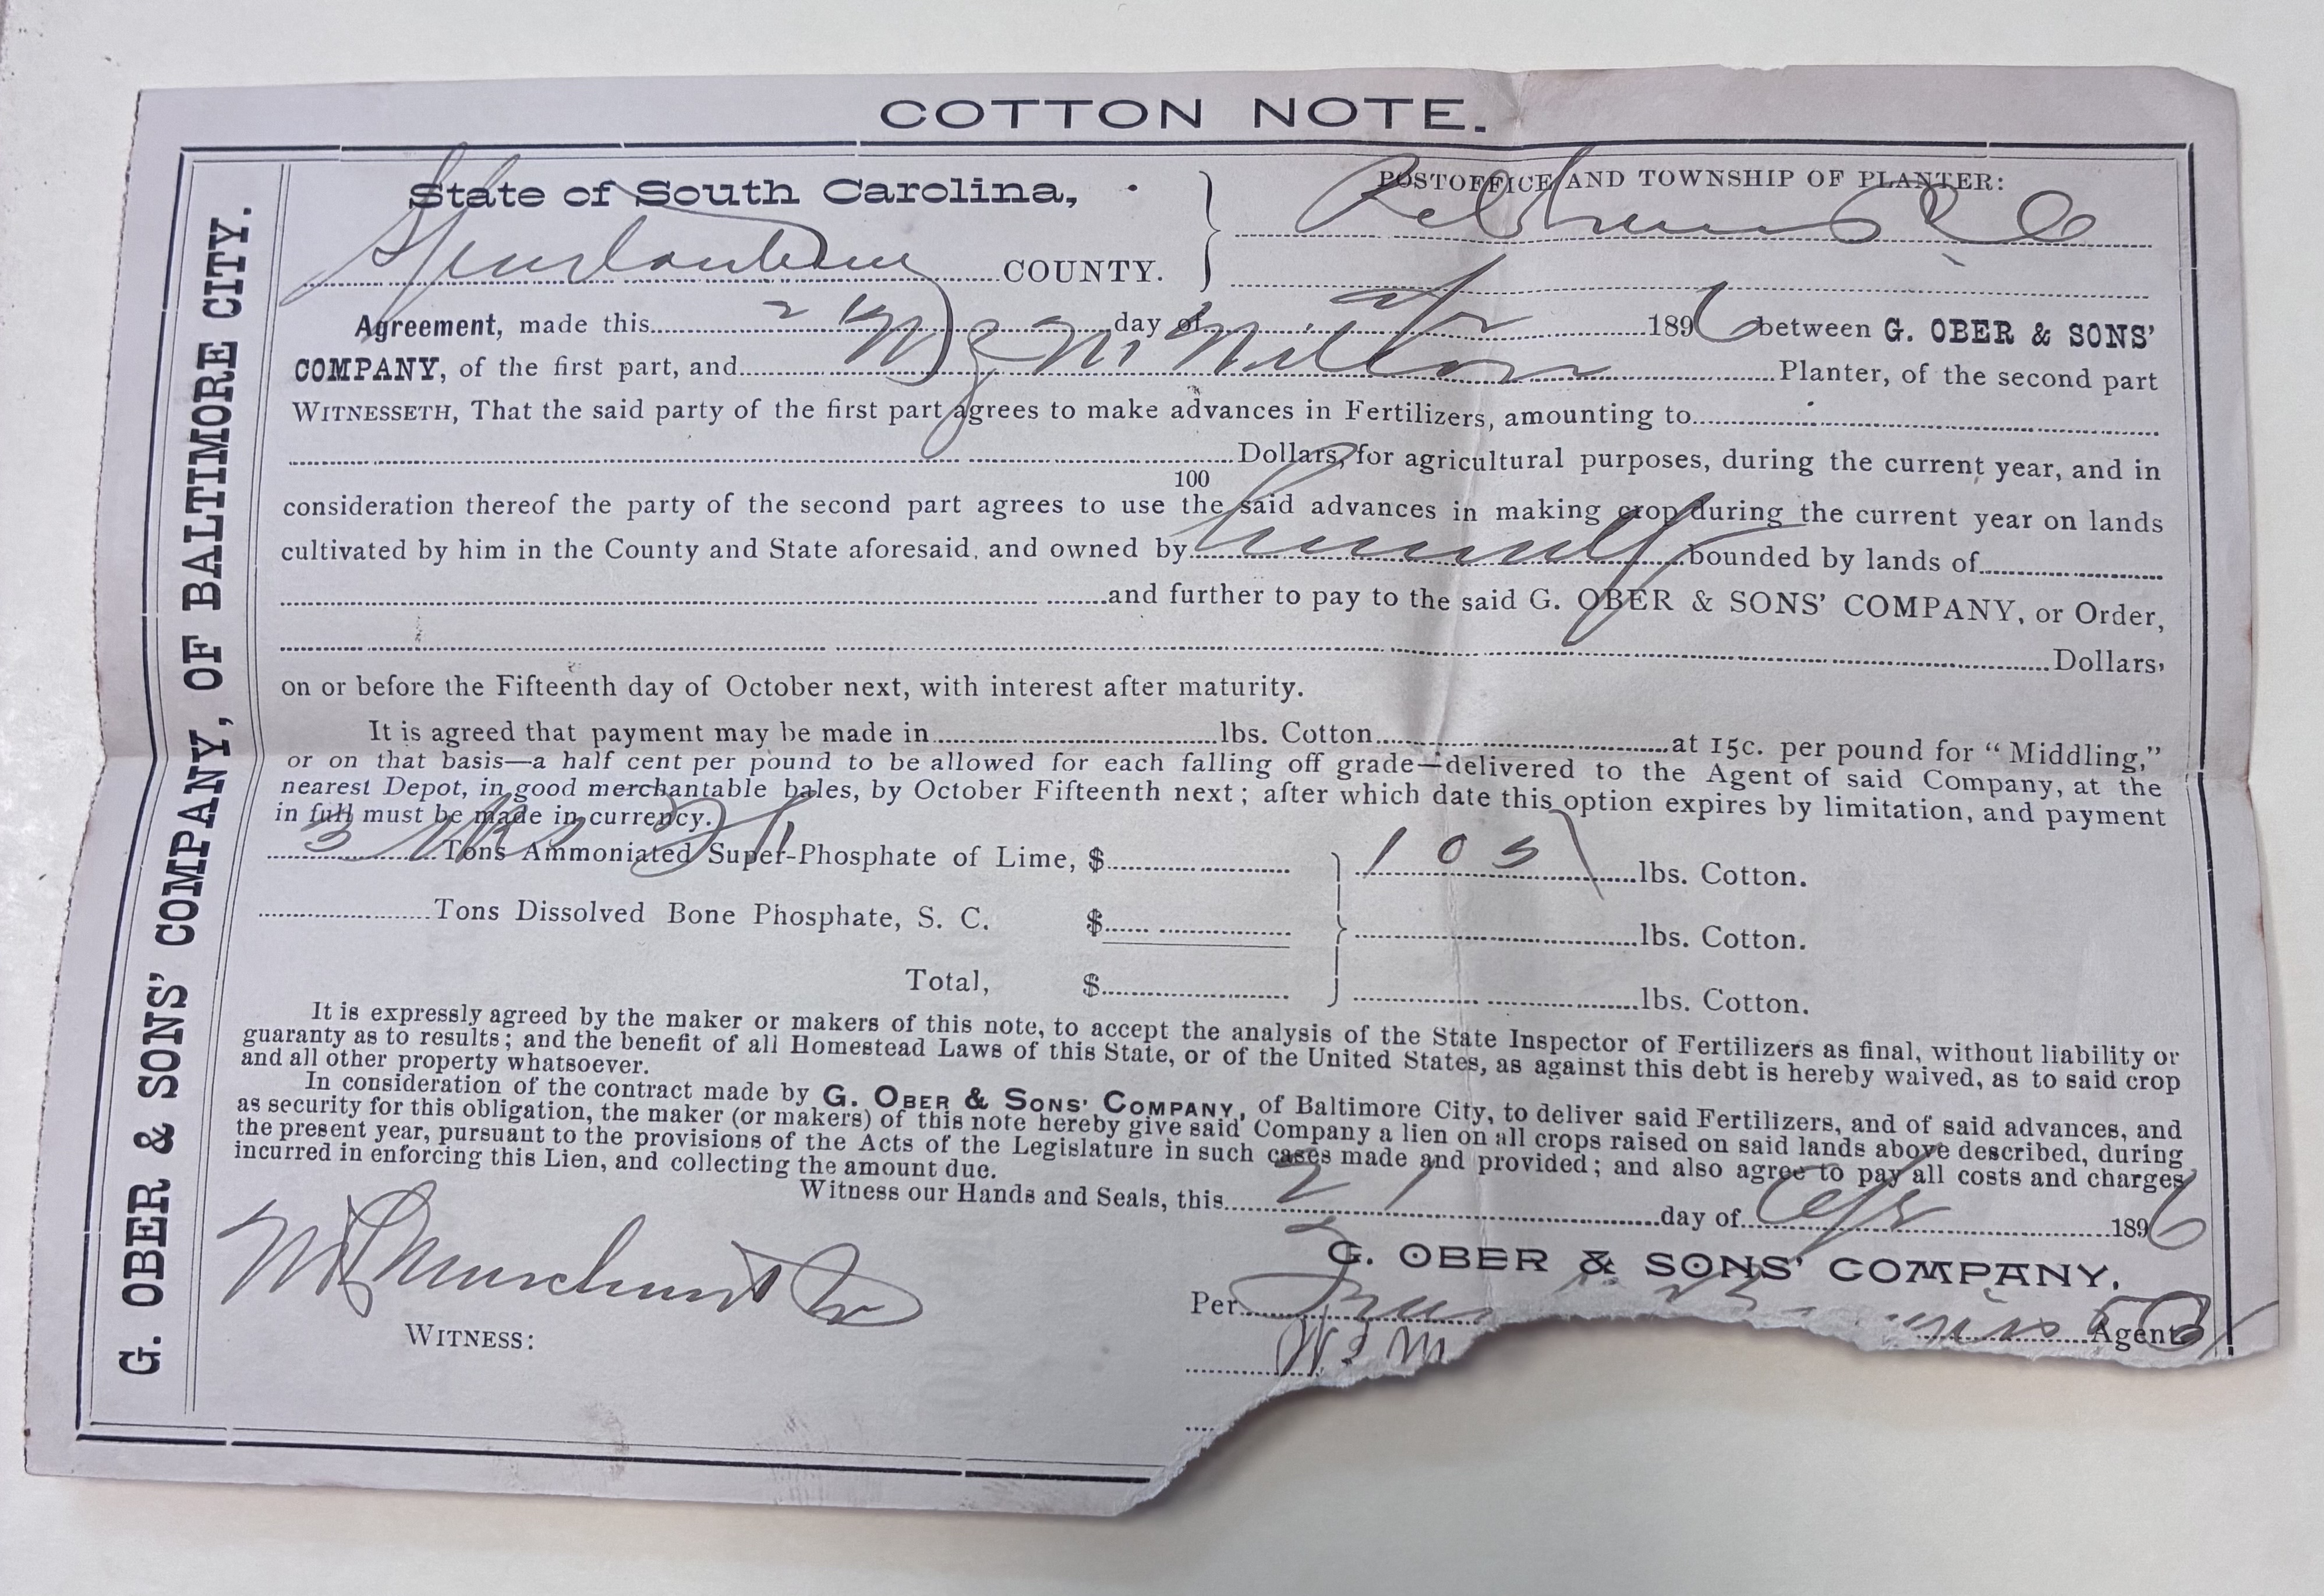 COTTON NOTE.
G. OBER & SONS' COMPANY, OF BALTIMORE CITY.
State of South Carolina,
Spartanburg COUNTY.
POSTOFFICE AND TOWNSHIP OF PLANTER:
Agreement, made this 21 day of Apr 1896 between G. OBER & SONS'
COMPANY, of the first part, and Planter, of the second part
WITNESSETH, That the said party of the first part agrees to make advances in Fertilizers, amounting to
Dollars, for agricultural purposes, during the current year, and in
100
consideration thereof the party of the second part agrees to use the said advances in making crop during the current year on lands
cultivated by him in the County and State aforesaid, and owned by himself bounded by lands of
and further to pay to the said G. OBER & SONS' COMPANY, or Order,
Dollars,
on or before the Fifteenth day of October next, with interest after maturity.
It is agreed that payment may be made in lbs. Cotton at 15c. per pound for "Middling,"
or on that basis—a half cent per pound to be allowed for each falling off grade—delivered to the Agent of said Company, at the
nearest Depot, in good merchantable bales, by October Fifteenth next; after which date this option expires by limitation, and payment
in full must be made in currency.
3 Tons Ammoniated Super-Phosphate of Lime, $ 105 lbs. Cotton.
Tons Dissolved Bone Phosphate, S. C. $ lbs. Cotton.
Total, $ lbs. Cotton.
It is expressly agreed by the maker or makers of this note, to accept the analysis of the State Inspector of Fertilizers as final, without liability or
guaranty as to results; and the benefit of all Homestead Laws of this State, or of the United States, as against this debt is hereby waived, as to said crop
and all other property whatsoever.
In consideration of the contract made by G. OBER & SONS' COMPANY, of Baltimore City, to deliver said Fertilizers, and of said advances, and
as security for this obligation, the maker (or makers) of this note hereby give said Company a lien on all crops raised on said lands above described, during
the present year, pursuant to the provisions of the Acts of the Legislature in such cases made and provided; and also agree to pay all costs and charges
incurred in enforcing this Lien, and collecting the amount due.
Witness our Hands and Seals, this 21 day of Apr 1896
G. OBER & SONS' COMPANY.
Per Agent
WITNESS: